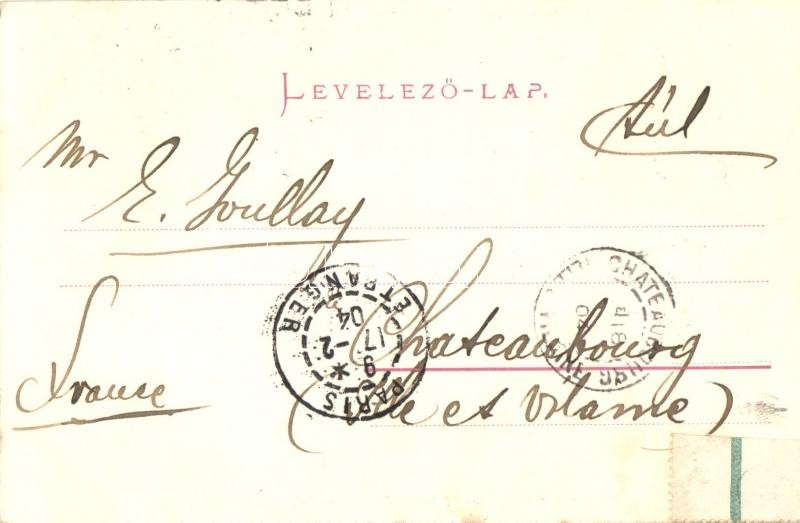 LEVELEZŐ-LAP.
Mr
E. Goullay
Chateaubourg
(Ille et Vilaine)
France
PARIS ETRANGER
9 * 17 -2 04
CHATEAUBOURG